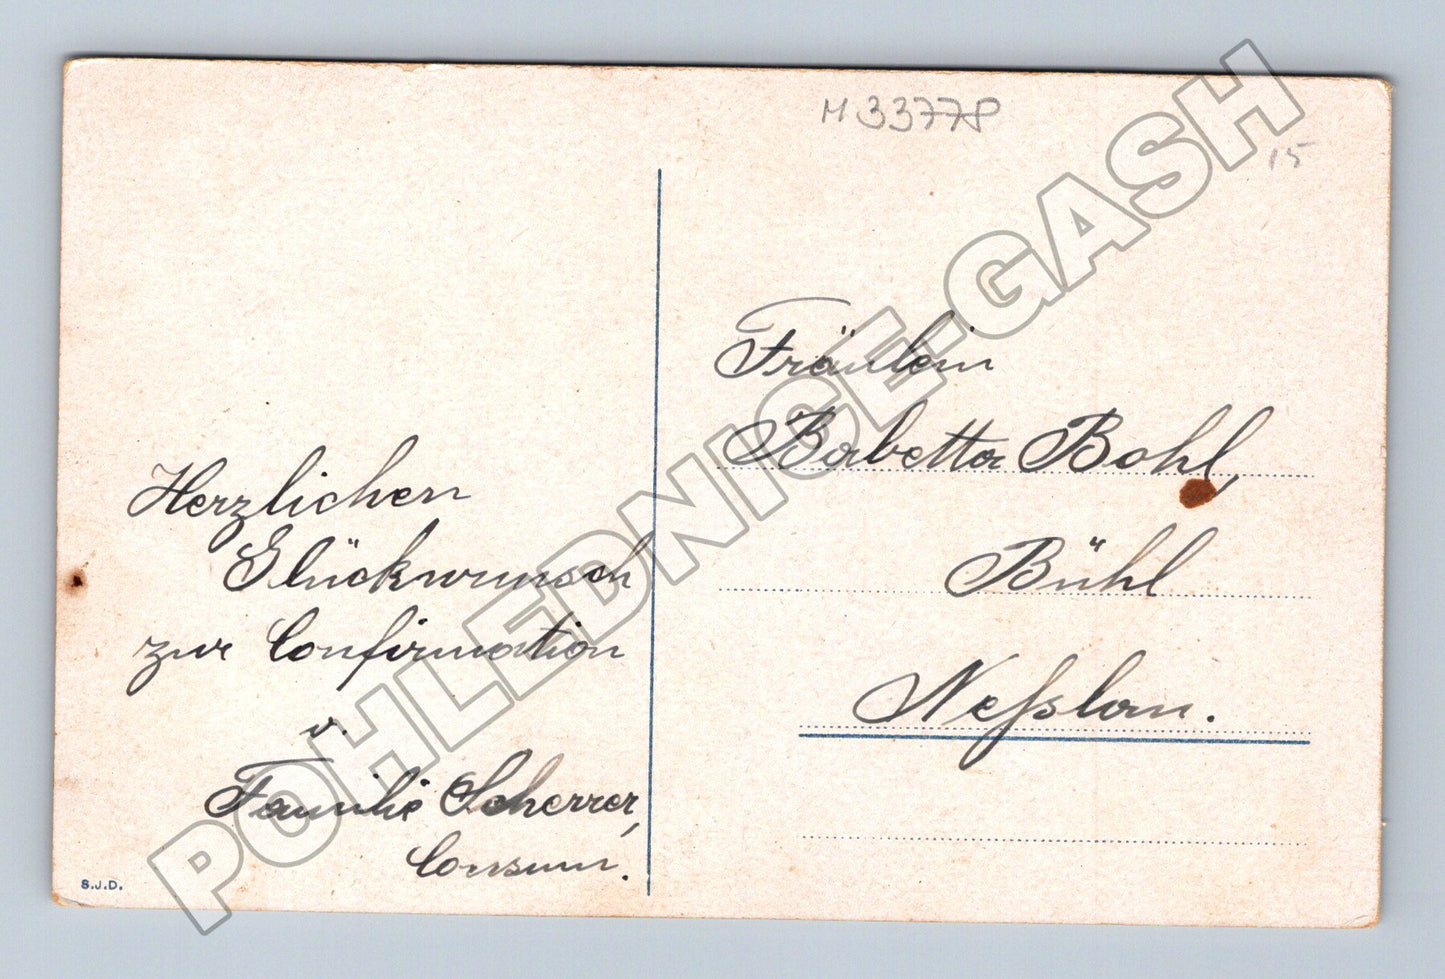 M 33778
15
Herzlichen
Glückwunsch
zur Confirmation
v.
Familie Scherrer,
Consum.
Fräulein
Babetta Bohl,
Bühl
Neßlau.
S.J.D.
POHLEDNICE-GASH